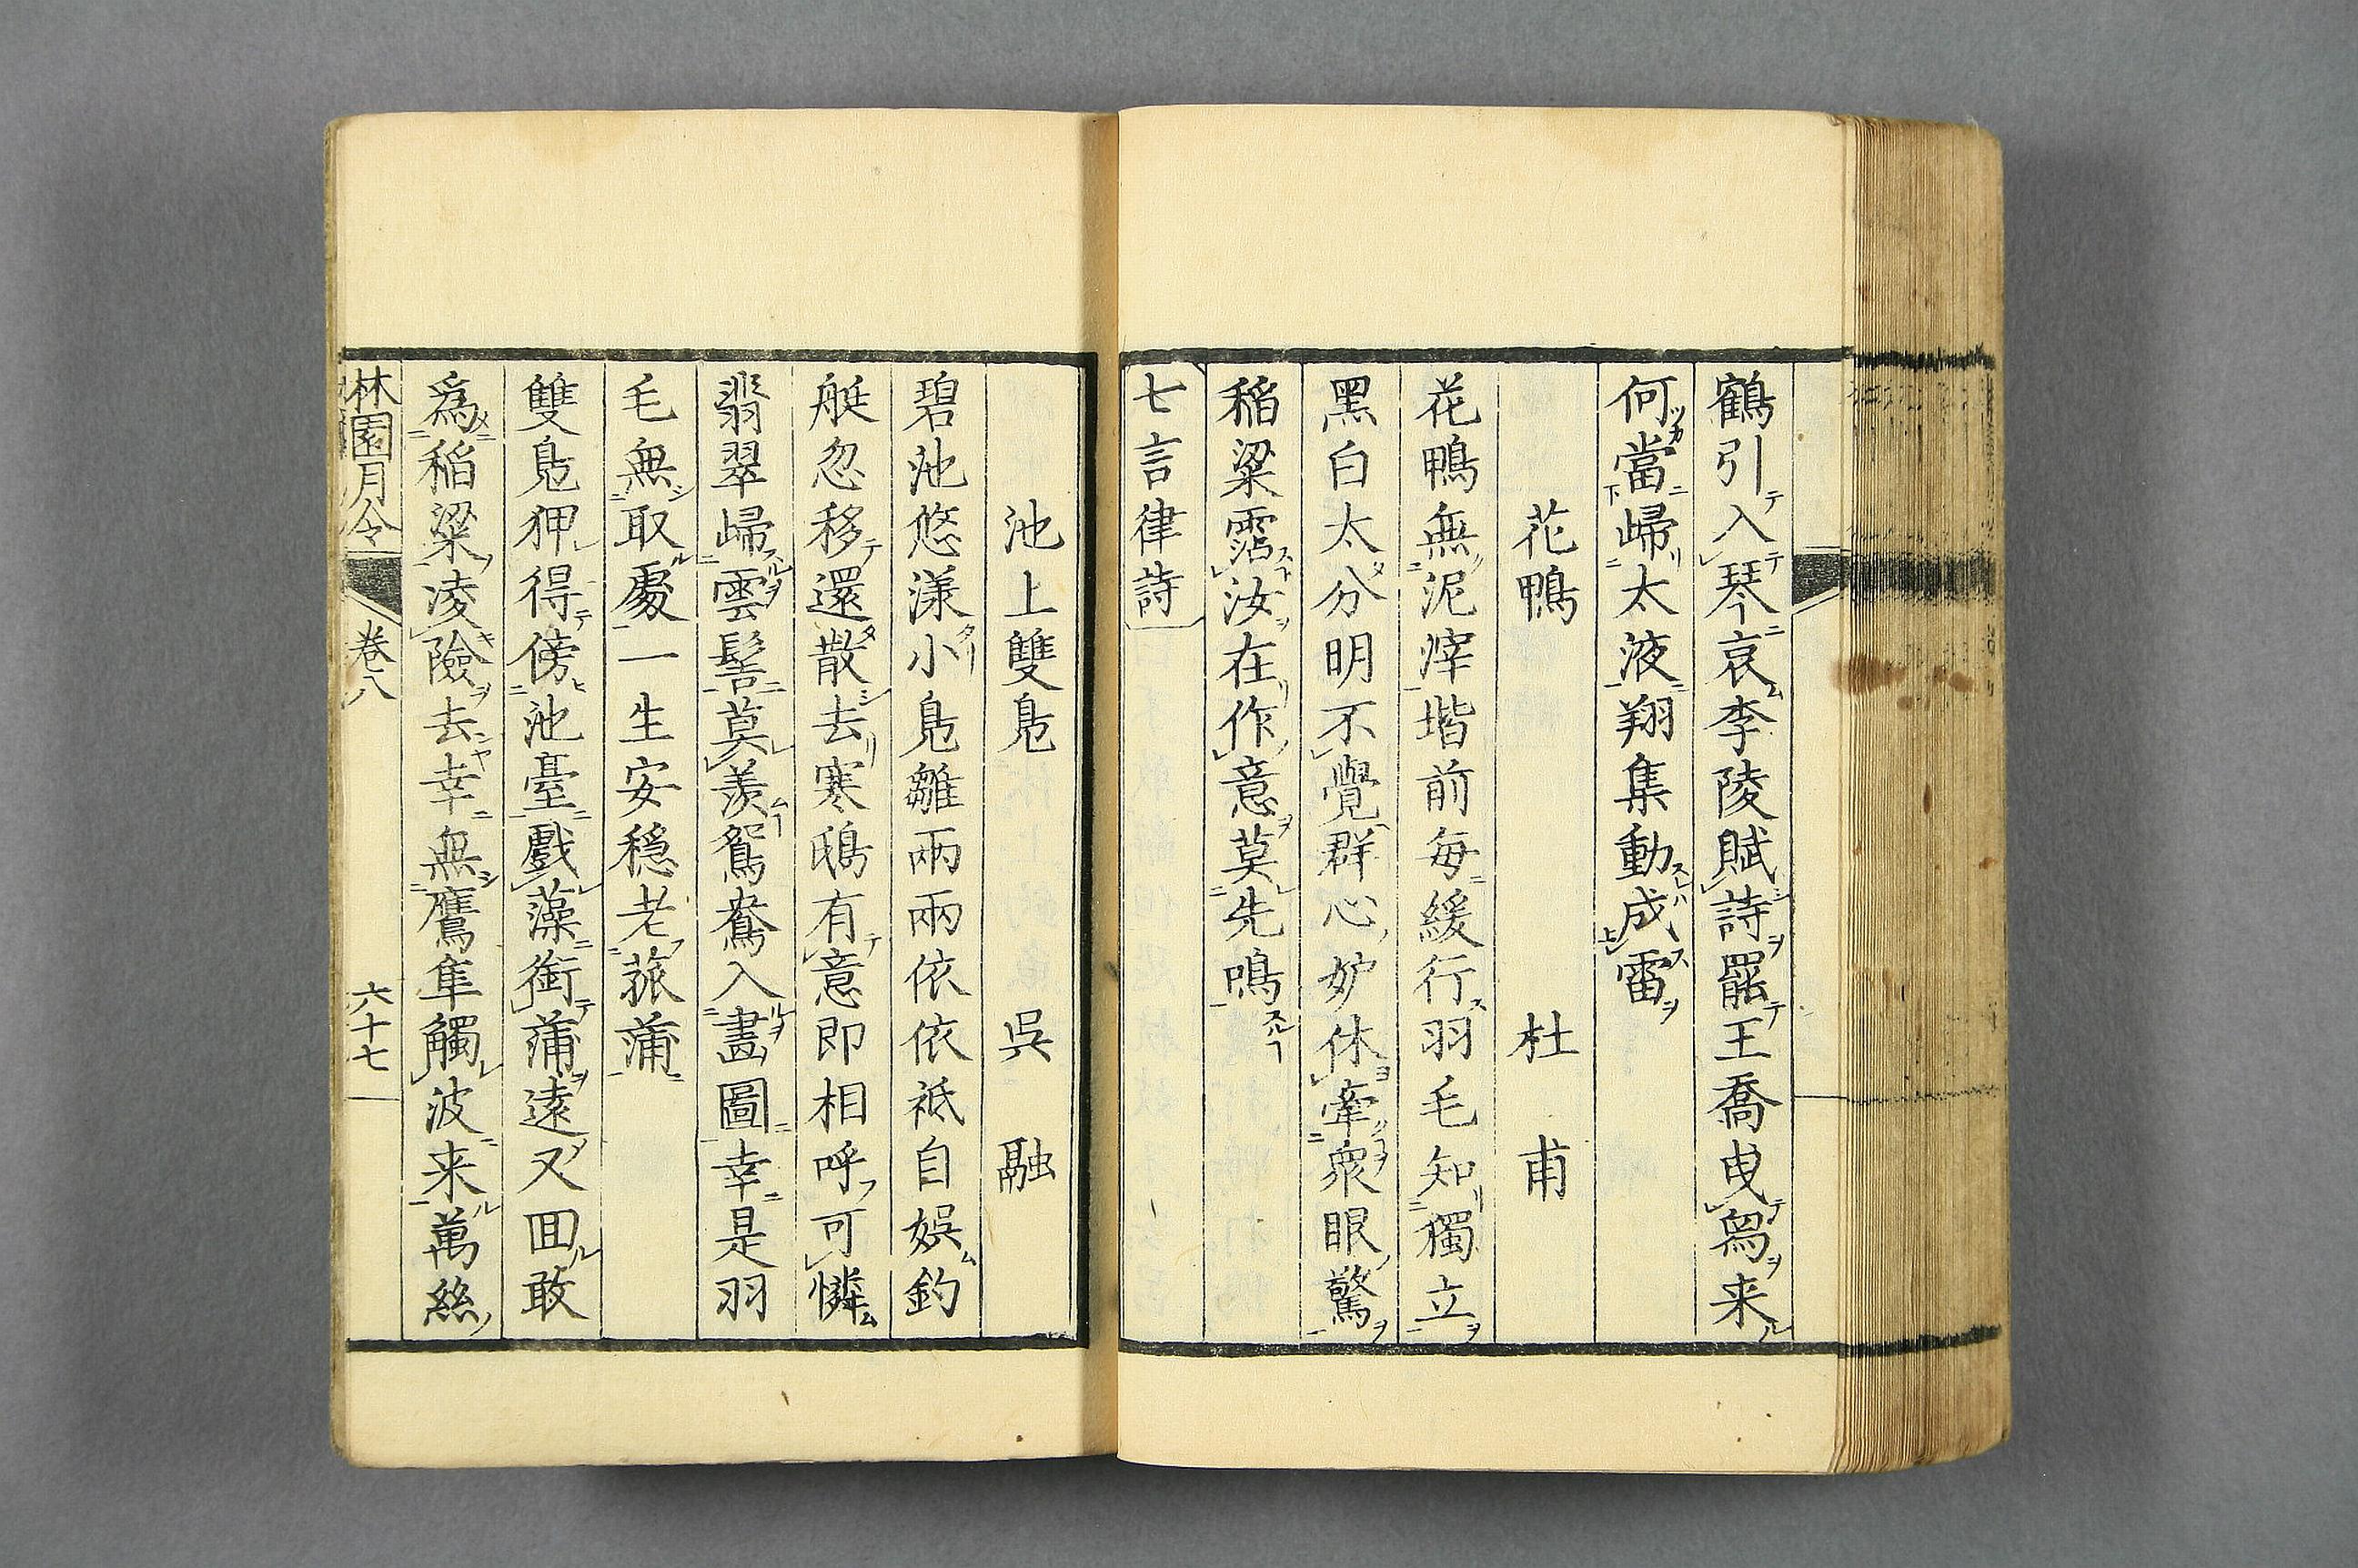 鶴引入琴哀李陵賦詩罷王喬曳舄来
何當歸太液翔集動成雷
花鴨 杜甫
花鴨無泥滓堦前每緩行羽毛知獨立
黑白太分明不覺群心妒休牽衆眼驚
稲粱霑汝在作意莫先鳴
七言律詩
池上雙鳧 呉融
碧池悠漾小鳧雛兩兩依依祗自娯釣
艇忽移還散去寒鴟有意即相呼可憐
翡翠歸雲髻莫羨鴛鴦入畫圖幸是羽
毛無取處一生安穏老菰蒲
雙鳧狎得傍池臺戲藻銜蒲遠又囬敢
為稲粱凌險去幸無鷹隼觸波来萬絲
林園月令 卷八 六十七